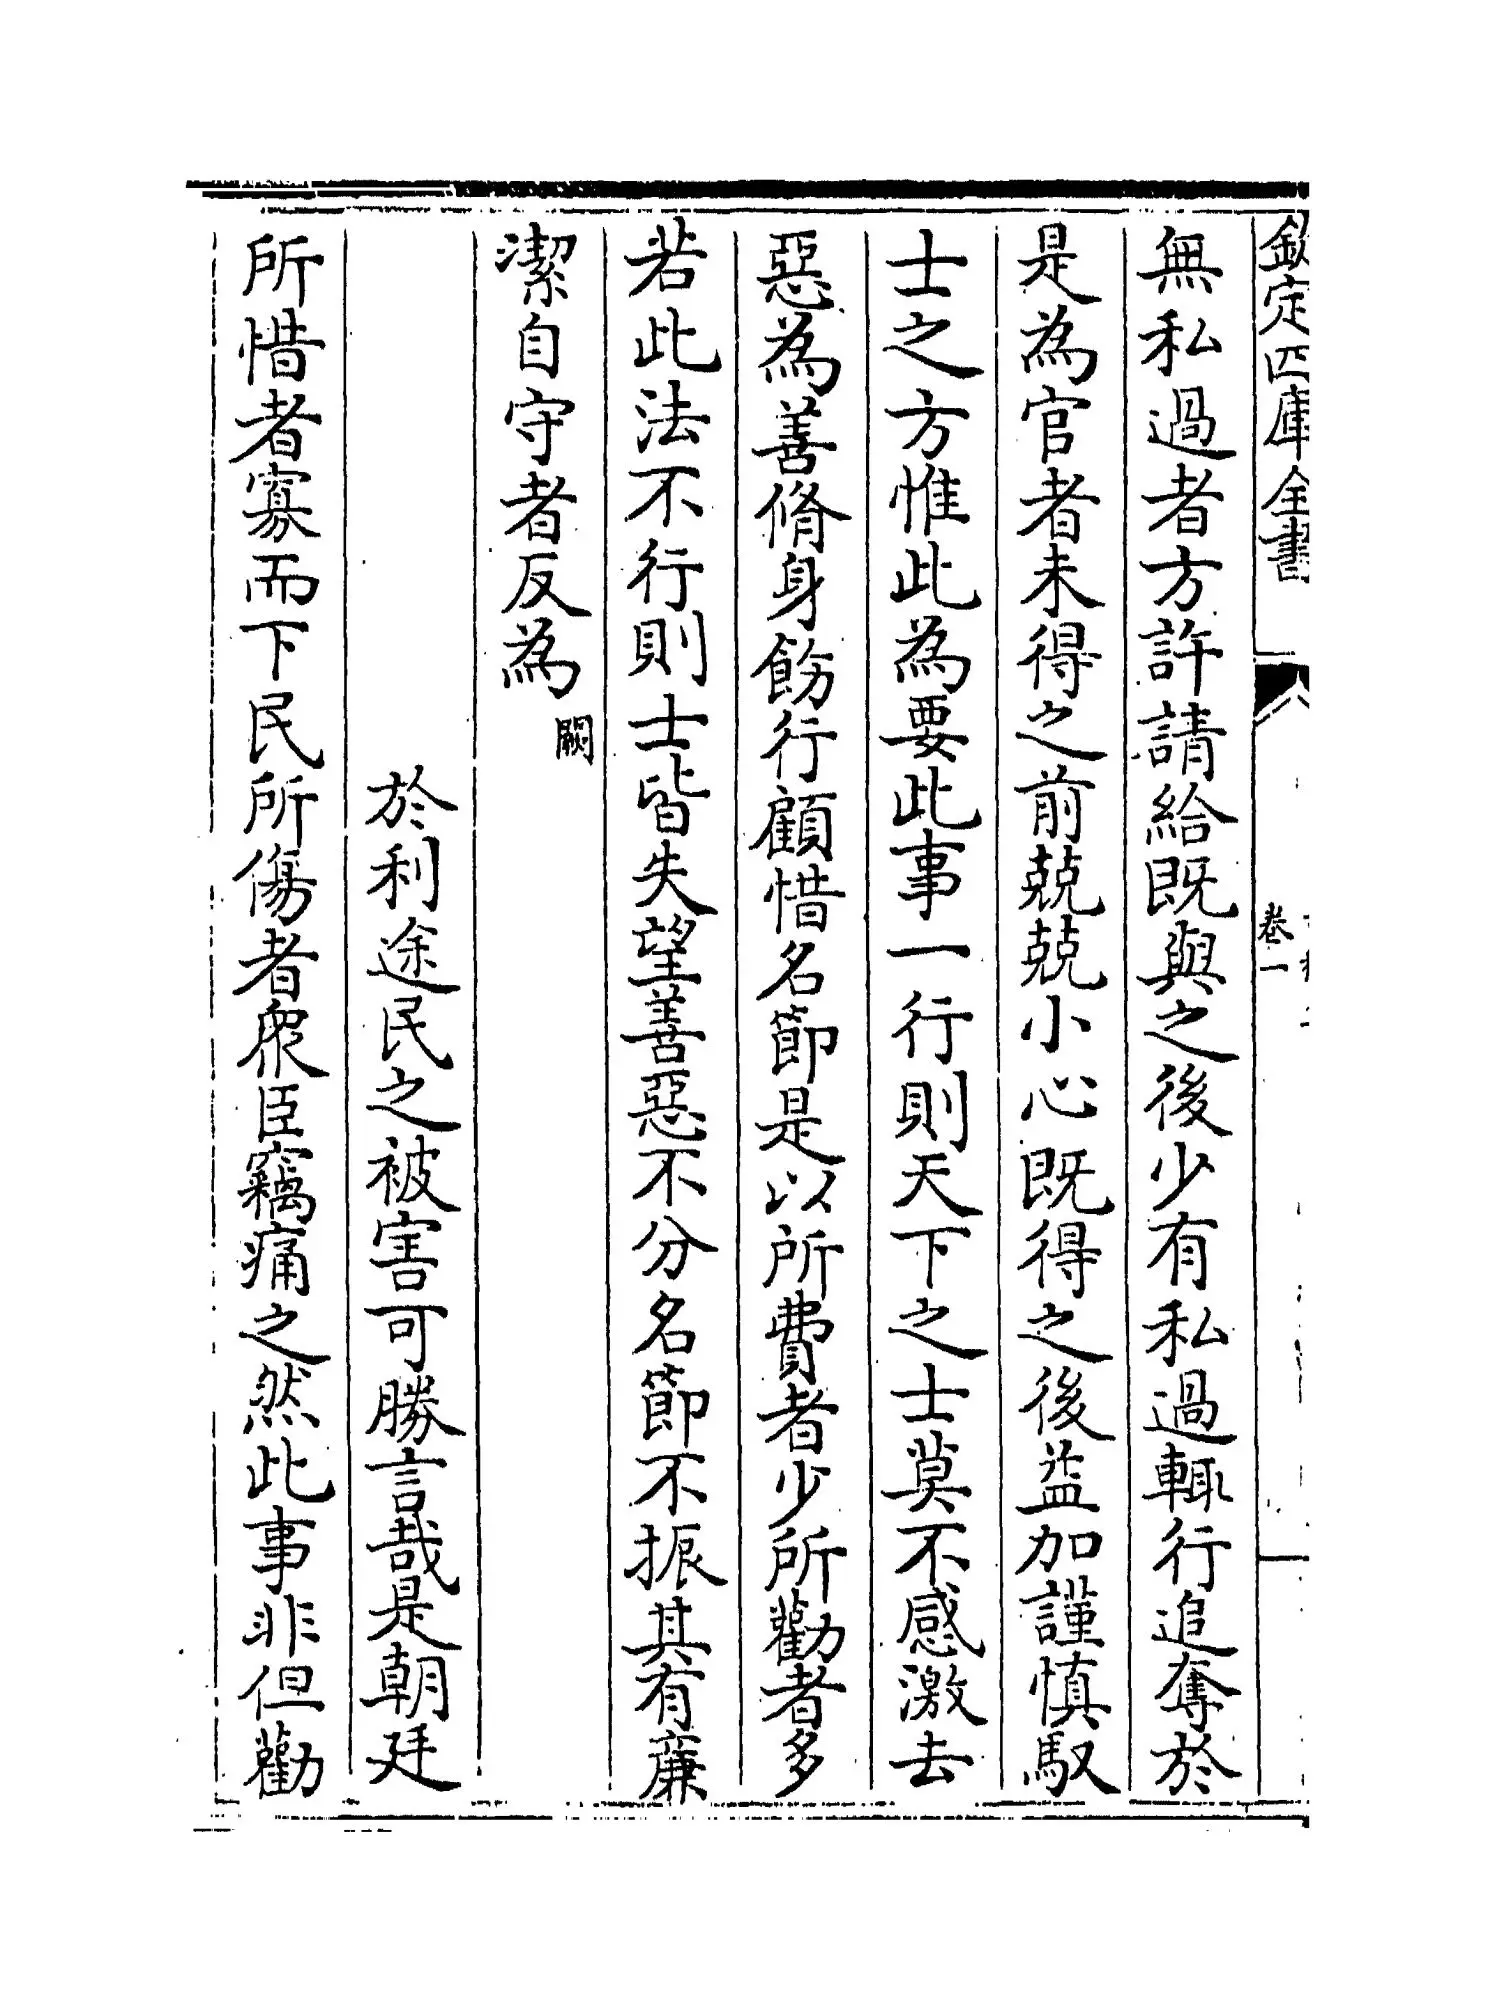 欽定四庫全書
卷一
無私過者方許請給既與之後少有私過輒行追奪於
是為官者未得之前兢兢小心既得之後益加謹慎馭
士之方惟此為要此事一行則天下之士莫不感激去
惡為善脩身飭行顧惜名節是以所費者少所勸者多
若此法不行則士皆失望善惡不分名節不振其有廉
潔自守者反為闕
於利途民之被害可勝言哉是朝廷
所惜者寡而下民所傷者衆臣竊痛之然此事非但勸